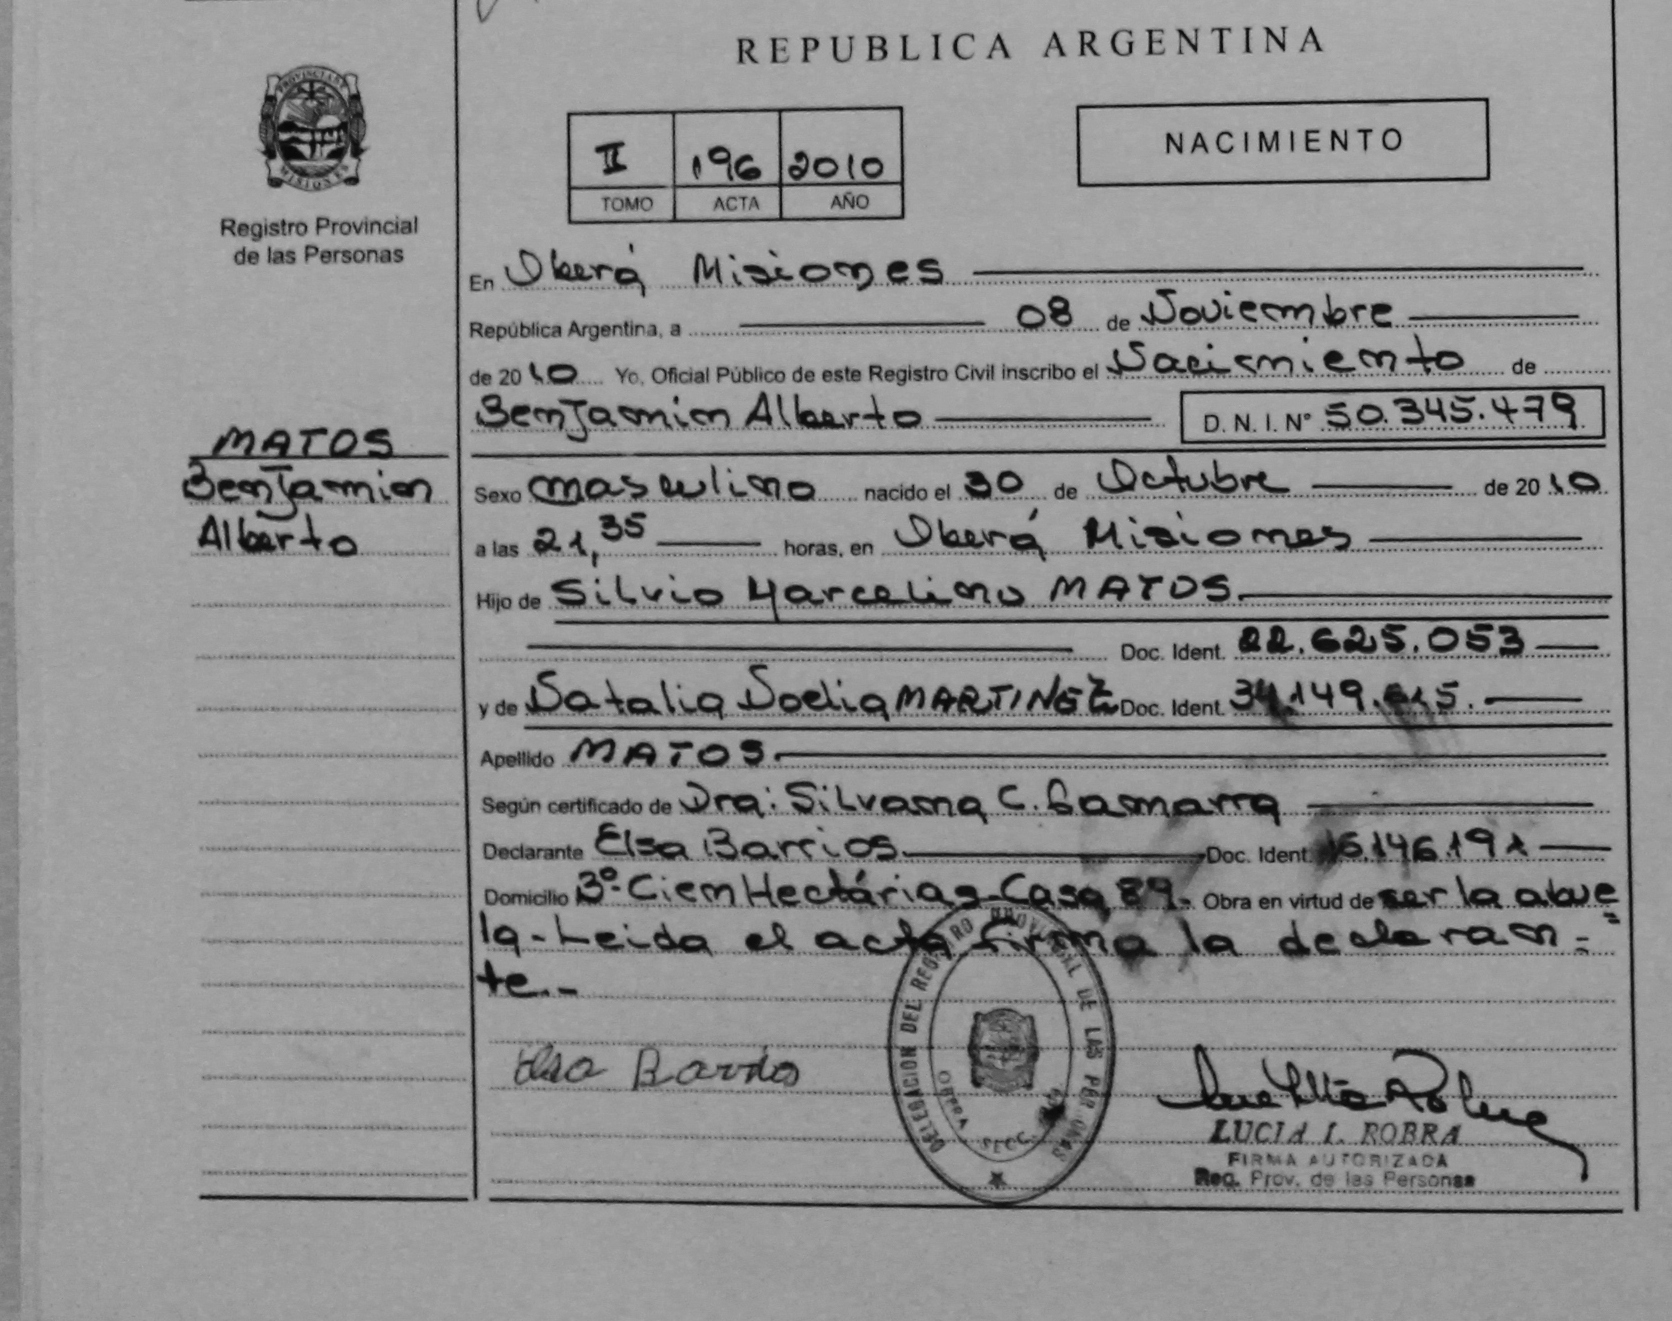 REPUBLICA ARGENTINA
PROVINCIA DE
MISIONES
Registro Provincial
de las Personas
II 196 2010
TOMO ACTA AÑO
NACIMIENTO
En Oberá Misiones
República Argentina, a 08 de Noviembre
de 2010 Yo, Oficial Público de este Registro Civil inscribo el Nacimiento de
Benjamin Alberto D. N. I. N° 50.345.479
MATOS
Benjamin
Alberto
Sexo masculino nacido el 30 de Octubre de 2010
a las 21,35 horas, en Oberá Misiones
Hijo de Silvio Marcelino MATOS.
Doc. Ident. 22.625.053
y de Natalia Noelia MARTINEZ Doc. Ident. 34.149.
Apellido MATOS.
Según certificado de Dra: Silvana C. Gamarra
Declarante Elsa Barrios. Doc. Ident. 16.146.191
Domicilio B°- Cien Hectárias- Casa 89. Obra en virtud de ser la abue
la- Leida el acta firma la declaran-
te.-
Elsa Barrios
DELEGACION DEL REGISTRO PROVINCIAL DE LAS PERSONAS
OBERA SECC.
LUCIA I. ROBRA
FIRMA AUTORIZADA
Reg. Prov. de las Personas